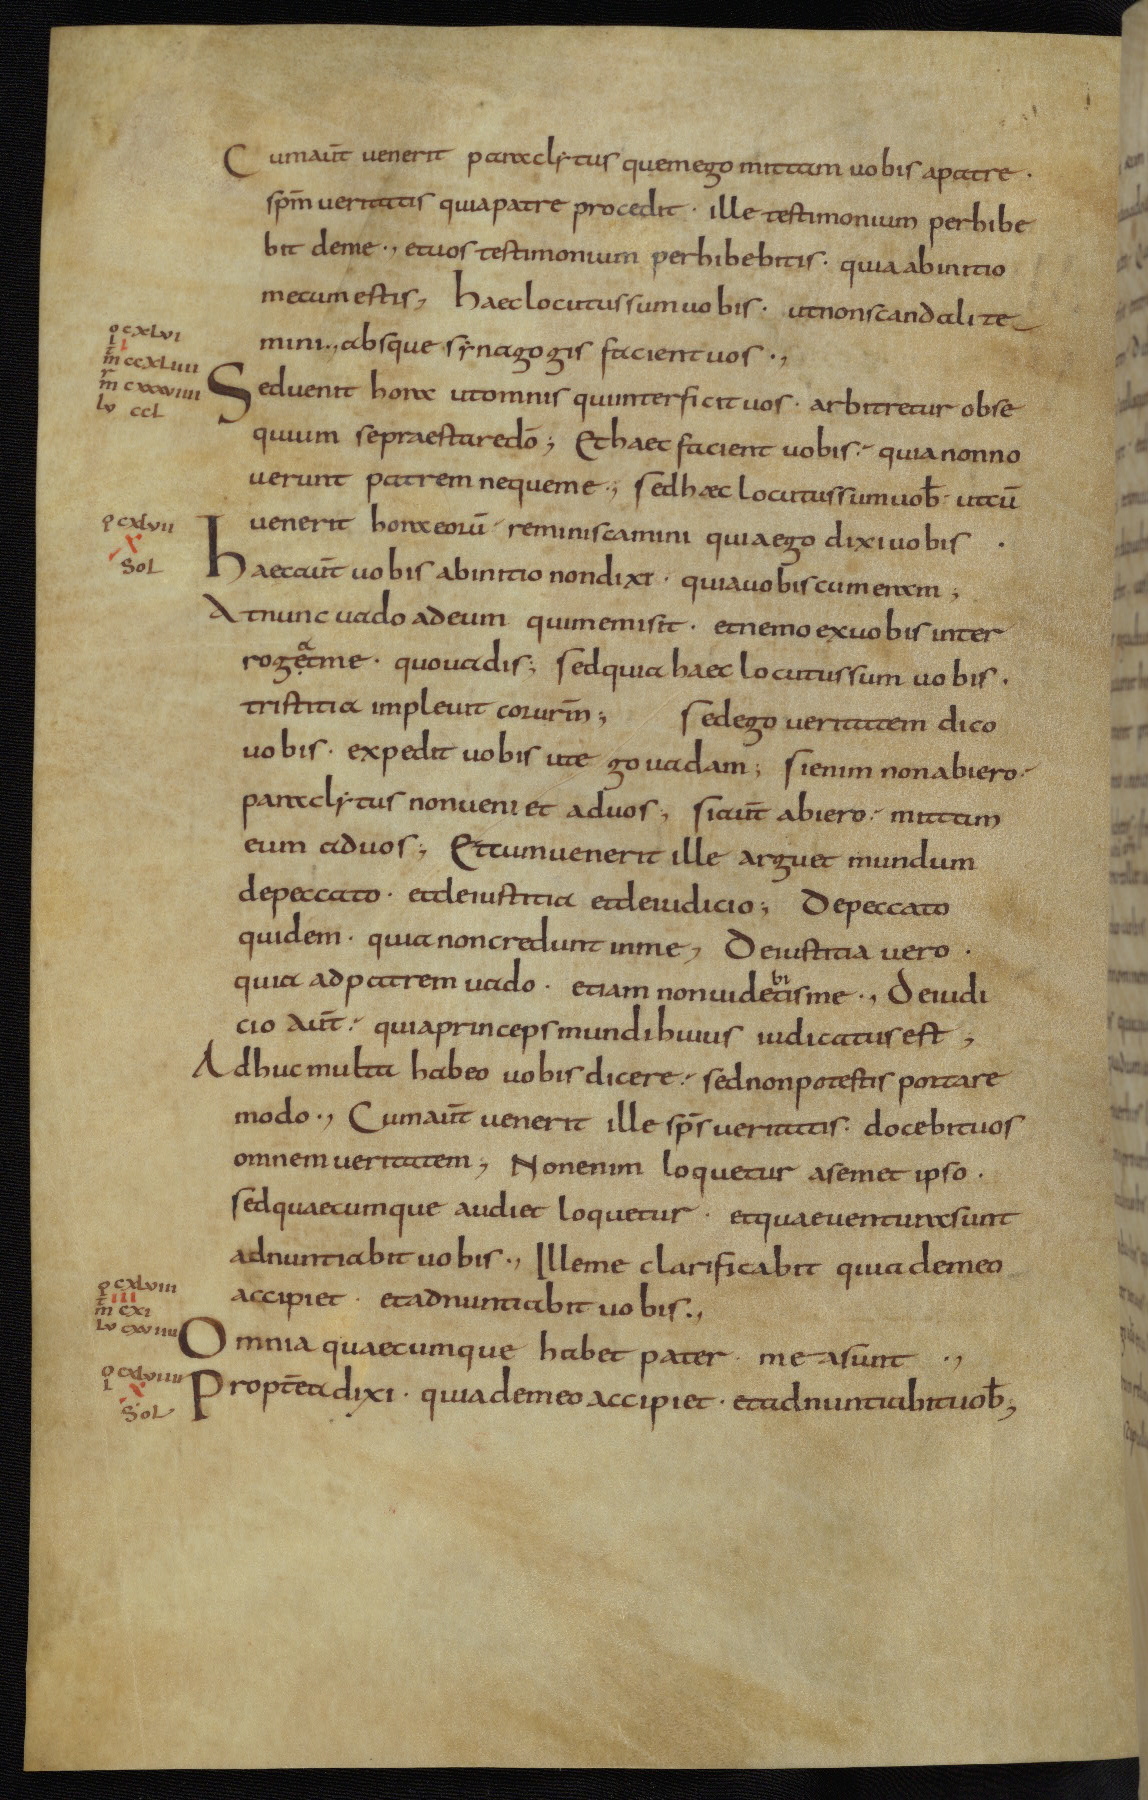 Cumaut̄ uenerit paraclytus quemego mittam uobis apatre ·
sp̄m ueritatis quiapatre procedit · ille testimonium perhibe
bit deme ·, etuos testimonium perhibebitis · quia abinitio
mecum estis, haec locutus sum uobis · utnonscandalize
mini ., absque synagogis facient uos ·,
o cxlvi
i
m ccxliiii
m cxxxviiii
lv ccl
Seduenit hora utomnis quiinterficit uos · arbitretur obse
quium sepraestaredō; Ethaec facient uobis · quianonno
uerunt patrem nequeme ·; sedhaec locutussumuob̄ · utcū
o cxlvii
x
Sol
uenerit hora eorū reminiscamini quiaego dixiuobis ·
haecaut̄ uobis abinitio nondixi · quiauobiscumeram ;
Atnunc uado adeum quimemisit · etnemo exuobis inter
rogeatme · quouadis; sedquia haec locutussum uobis ·
tristitia impleuit corurm̄; sedego ueritatem dico
uobis · expedit uobis ute go uadam; sienim nonabiero ·
paraclytus nonueniet aduos; siaut̄ abiero · mittam
eum aduos; Etcumuenerit ille arguet mundum
depeccato · etdeiustitia etdeiudicio; Depeccato
quidem · quianoncredunt inme, Deiustitia uero ·
quia adpatrem uado · etiam nonuidebitisme ·, Deiudi
cio aut̄ · quiaprincepsmundihuius iudicatusest ,
Adhucmulta habeo uobisdicere · sednonpotestis portare
modo ·, Cumaut̄ uenerit ille sp̄s ueritatis · docebituos
omnemueritatem; Nonenim loquetur asemet ipso ·
sedquaecumque audiet loquetur · etquaeuenturasunt
adnuntiabit uobis ·, Illeme clarificabit quiademeo
accipiet · etadnuntiabit uobis .,
o cxlviii
iii
m cxi
lv cxviiii
Omnia quaecumque habet pater · measunt ·,
o cxlviiii
x
Sol
Propt̄ea dixi · quiademeoaccipiet · etadnuntiabituob̄;